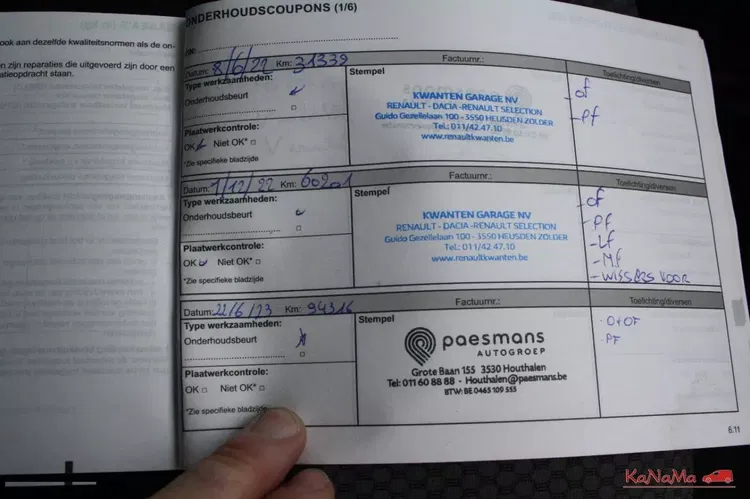 ook aan dezelfde kwaliteitsnormen als de on-
n zijn reparaties die uitgevoerd zijn door een
atieopdracht staan.
ONDERHOUDSCOUPONS (1/6)
VIN:
Datum: 8/6/22 Km: 31339 Factuurnr.: Toelichting/diversen
Type werkzaamheden:
Onderhoudsbeurt
Stempel
KWANTEN GARAGE NV
RENAULT - DACIA - RENAULT SELECTION
Guido Gezellelaan 100 - 3550 HEUSDEN ZOLDER
Tel.: 011/42.47.10
www.renaultkwanten.be
- of
- Pf
Plaatwerkcontrole:
OK Niet OK*
*Zie specifieke bladzijde
Datum: 1/12/22 Km: 60201 Factuurnr.: Toelichting/diversen
Type werkzaamheden:
Onderhoudsbeurt
Stempel
KWANTEN GARAGE NV
RENAULT - DACIA - RENAULT SELECTION
Guido Gezellelaan 100 - 3550 HEUSDEN ZOLDER
Tel.: 011/42.47.10
www.renaultkwanten.be
- of
- Pf
- Lf
- Mf
- WISSERS VOOR
Plaatwerkcontrole:
OK Niet OK*
*Zie specifieke bladzijde
Datum: 22/6/23 Km: 94316 Factuurnr.: Toelichting/diversen
Type werkzaamheden:
Onderhoudsbeurt
Stempel
paesmans
AUTOGROEP
Grote Baan 155 3530 Houthalen
Tel: 011 60 88 88 - Houthalen@paesmans.be
BTW: BE 0465 109 555
- O+OF
- PF
Plaatwerkcontrole:
OK Niet OK*
*Zie specifieke bladzijde
6.11
KaNaMa